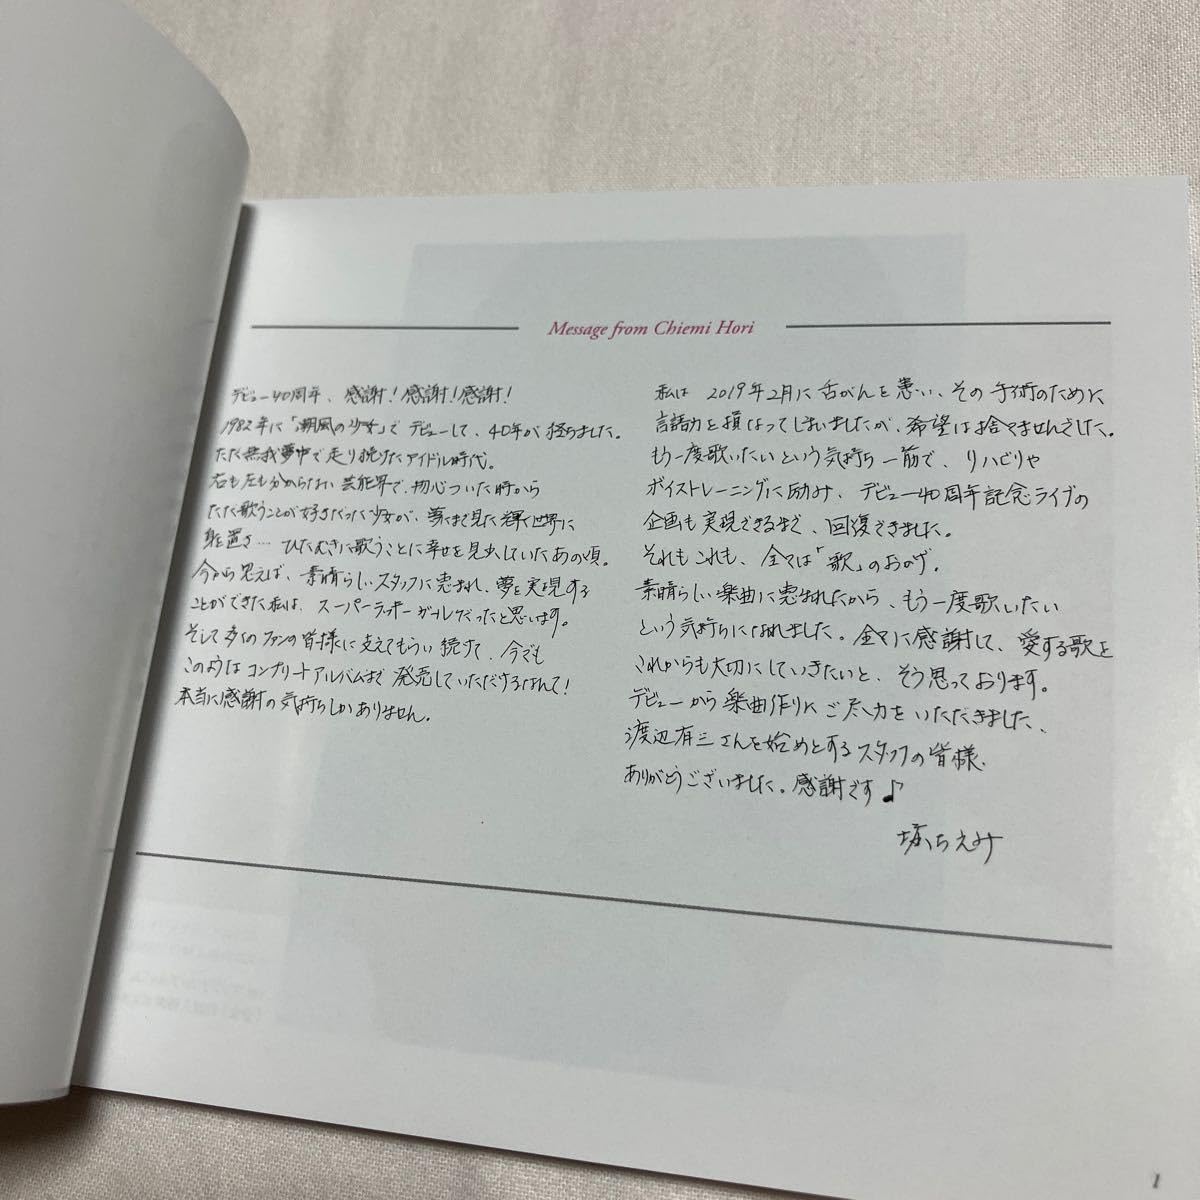 Message from Chiemi Hori
デビュー40周年、感謝!感謝!感謝!
1982年に「潮風の少女」でデビューして、40年が経ちました。
ただ無我夢中で走り続けたアイドル時代。
右も左も分からない芸能界で、物心ついた時から
ただ歌うことが好きだった少女が、夢にまで見た輝く世界に
身を置き… ひたむきに歌うことに幸せを見出していたあの頃。
今から思えば、素晴らしいスタッフに恵まれ、夢を実現する
ことができた私は、スーパーラッキーガールだったと思います。
そして多くのファンの皆様に支えてもらい続けて、今でも
このようなコンプリートアルバムまで発売していただけるなんて!
本当に感謝の気持ちしかありません。
私は 2019年2月に舌がんを患い、その手術のために
言語力を損なってしまいましたが、希望は捨てませんでした。
もう一度歌いたいという気持ち一筋で、リハビリや
ボイストレーニングに励み、デビュー40周年記念ライブの
企画も実現できるまで、回復できました。
それもこれも、全ては「歌」のおかげ。
素晴らしい楽曲に恵まれたから、もう一度歌いたい
という気持ちになれました。全てに感謝して、愛する歌を
これからも大切にしていきたいと、そう思っております。
デビューから楽曲作りにご尽力をいただきました、
渡辺有三さんを始めとするスタッフの皆様、
ありがとうございました。感謝です♪
堀ちえみ
1